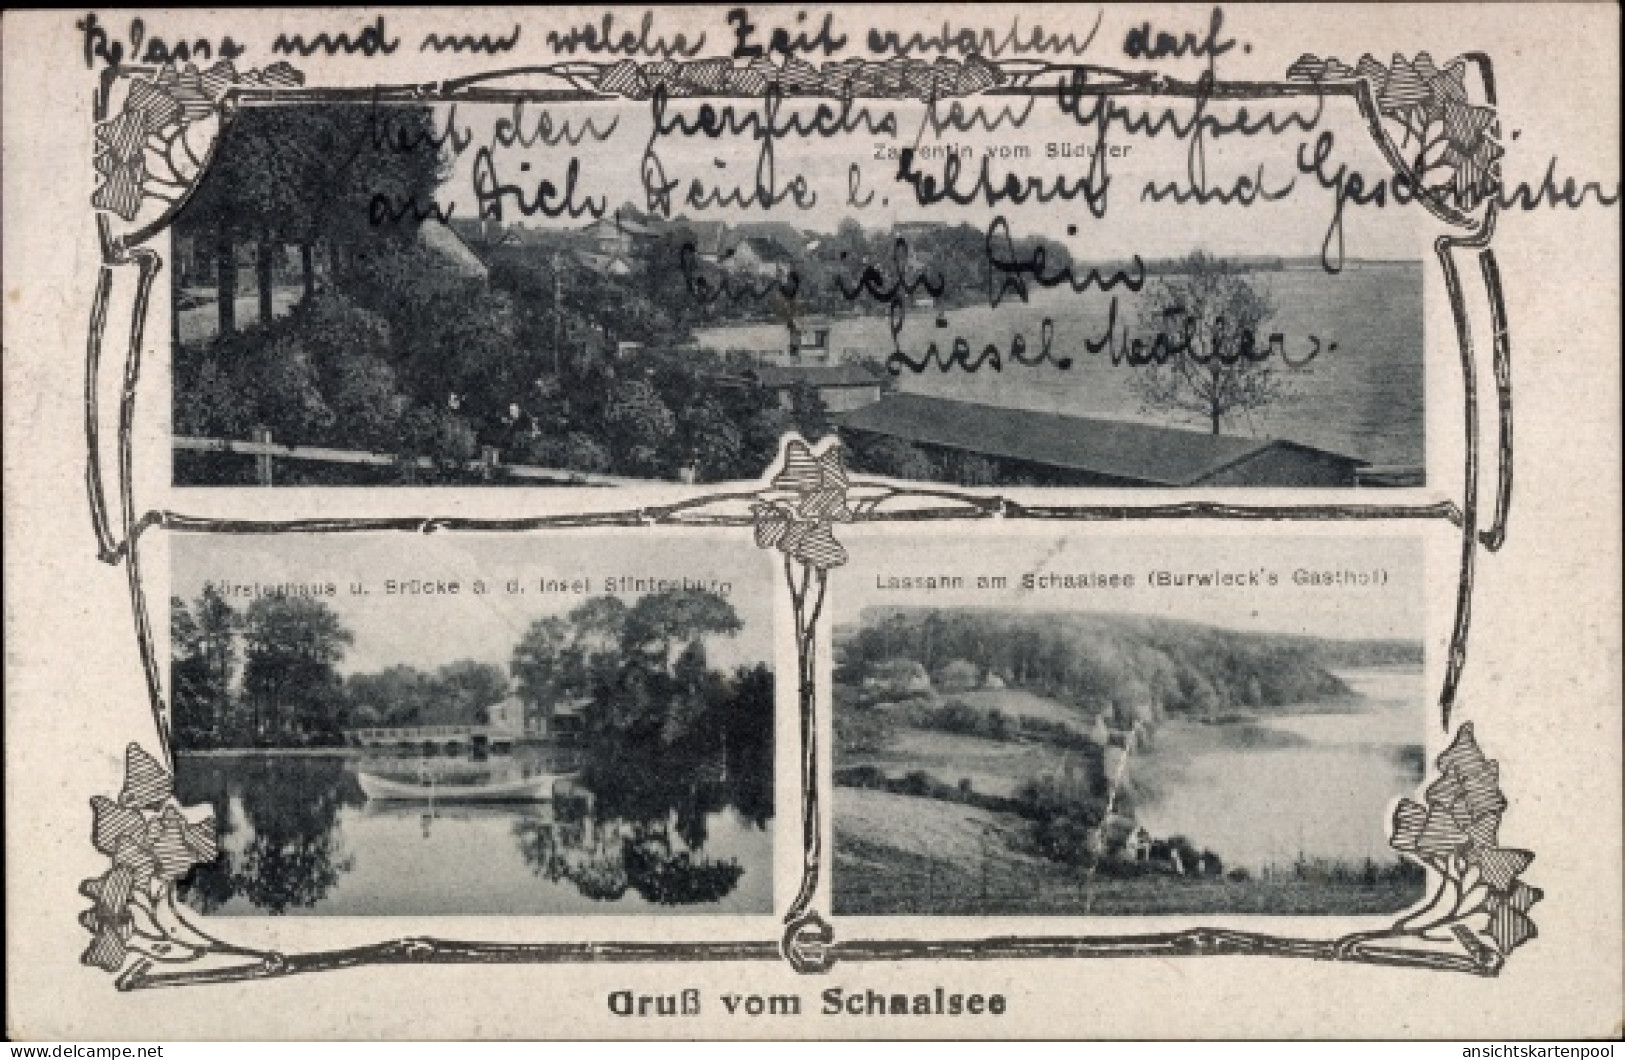 Klasse und um welche Zeit erwarten darf.
Mit den herzlichsten Grüßen
Zarrentin vom Südufer
an Dich, Deine l. Eltern und Geschwister
bin ich Dein
Liesel Möller.
Försterhaus u. Brücke a. d. Insel Stintenburg
Lassahn am Schaalsee (Burwieck's Gasthof)
Gruß vom Schaalsee
delcampe.net
ansichtskartenpool